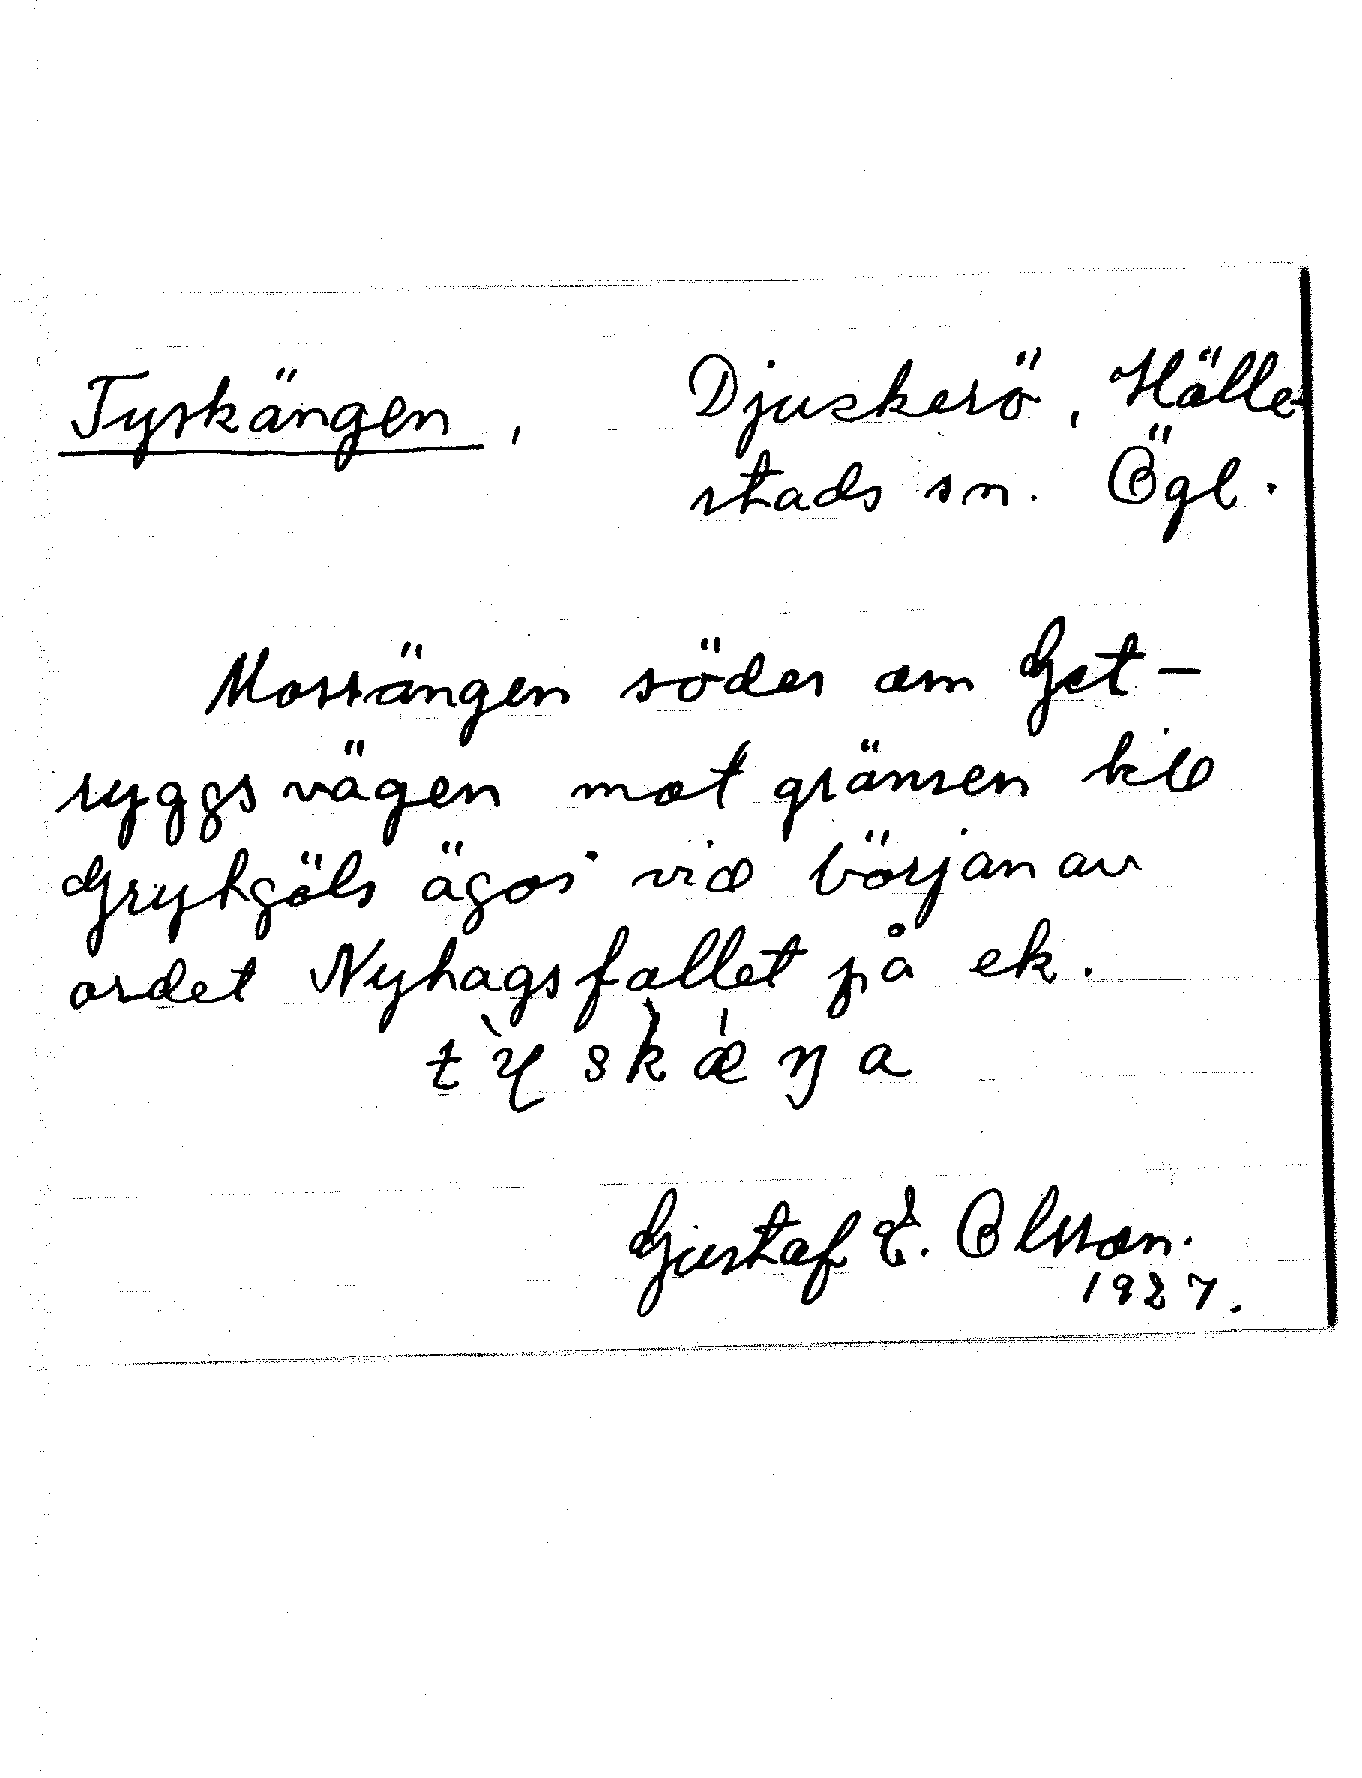 Tyskängen, Djuskerö, Hälle-
stads sn. Ögl.
Mossängen söder om Get-
ryggsvägen mot gränsen till
Grytgöls ägor vid början av
ordet Nyhagsfallet på ek.
ty̆skæŋa
Gustaf E. Olsson.
1927.